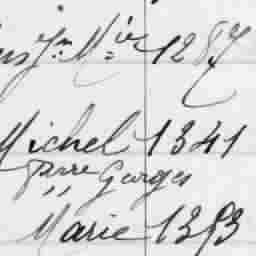 Jn Mie 1287
Michel 1341
Pierre Georges
" "
Marie 1393